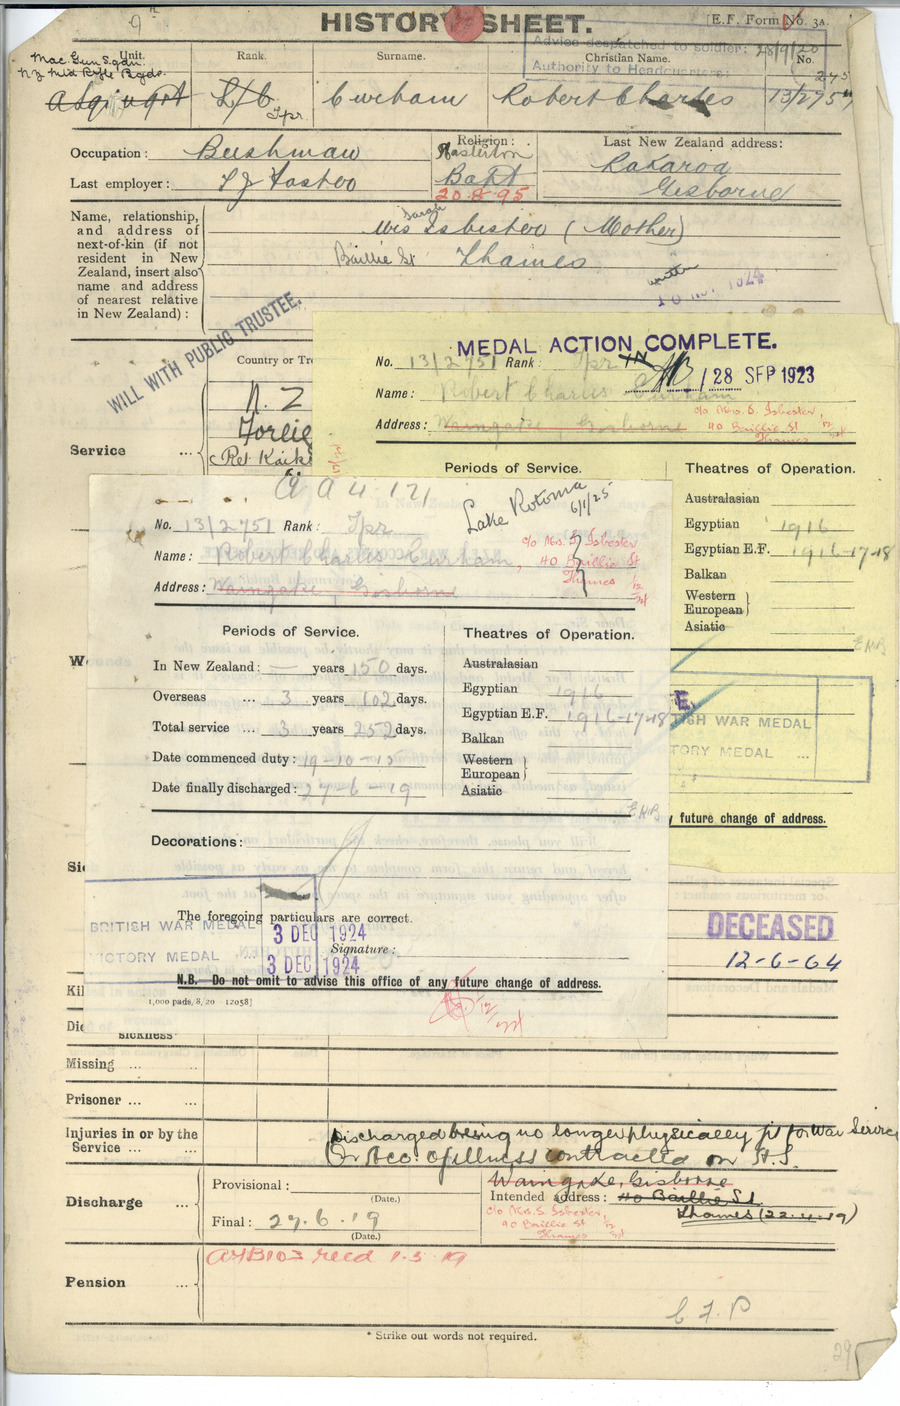 HISTORY SHEET.
[E.F. Form No. 3A.
Advice despatched to soldier: 28/9/20
Authority to Headquarters:
Unit.
Rank.
Surname.
Christian Name.
No.
Mac. Gun Sqdn
N.Z. Mtd Rifle Bgde.
L/C
Tpr.
Curham
Robert Charles
13/2751
Occupation: Bushman
Religion:
Masterton
Bapt
20.8.95
Last New Zealand address:
Last employer:
Gisborne
Name, relationship,
and address of
next-of-kin (if not
resident in New
Zealand, insert also
name and address
of nearest relative
in New Zealand):
Sarah
Mrs Isbester (Mother)
Baillie St Thames
written
1924
WILL WITH PUBLIC TRUSTEE.
Country or
N. Z
Service ...
MEDAL ACTION COMPLETE.
28 SEP 1923
No. 13/2751 Rank: Tpr
Name: Robert Charles Curham
Address: Waingake, Gisborne
c/o Mrs. S. Isbester,
40 Baillie St
Thames
Periods of Service.
Theatres of Operation.
Australasian
Egyptian 1916
Egyptian E.F. 1916-17-18
Balkan
Western
European
Asiatic
E.M.B
TISH WAR MEDAL
TORY MEDAL ...
future change of address.
Lake Rotoma
6/1/25
No. 13/2751 Rank: Tpr
Name: Robert Charles Curham,
Address: Waingake Gisborne
c/o Mrs. S. Isbester
40 Baillie St
Thames
Periods of Service.
In New Zealand: — years 150 days.
Overseas ... 3 years 102 days.
Total service ... 3 years 252 days.
Date commenced duty: 19-10-15
Date finally discharged: 27-6-19
Theatres of Operation.
Australasian
Egyptian 1916
Egyptian E.F. 1916-17-18
Balkan
Western
European
Asiatic
E.M.B
Decorations:
The foregoing particulars are correct.
BRITISH WAR MEDAL 3 DEC 1924
Signature:
VICTORY MEDAL ... 3 DEC 1924
N.B. Do not omit to advise this office of any future change of address.
1,000 pads, 8/20 12058]
DECEASED
12-6-64
Kil
Die
sickness
Missing ... ...
Prisoner ... ...
Injuries in or by the
Service ... ...
Discharged being no longer physically fit for War Service
On Acc. of illness contracted on A.S.
Discharge ...
Provisional:
(Date.)
Final: 27.6.19
(Date.)
Waingake, Gisborne
Intended address: 40 Baillie St.
Thames (22.4.19)
c/o Mrs. S. Isbester,
40 Baillie St
Thames
Pension ...
1.5.19
* Strike out words not required.